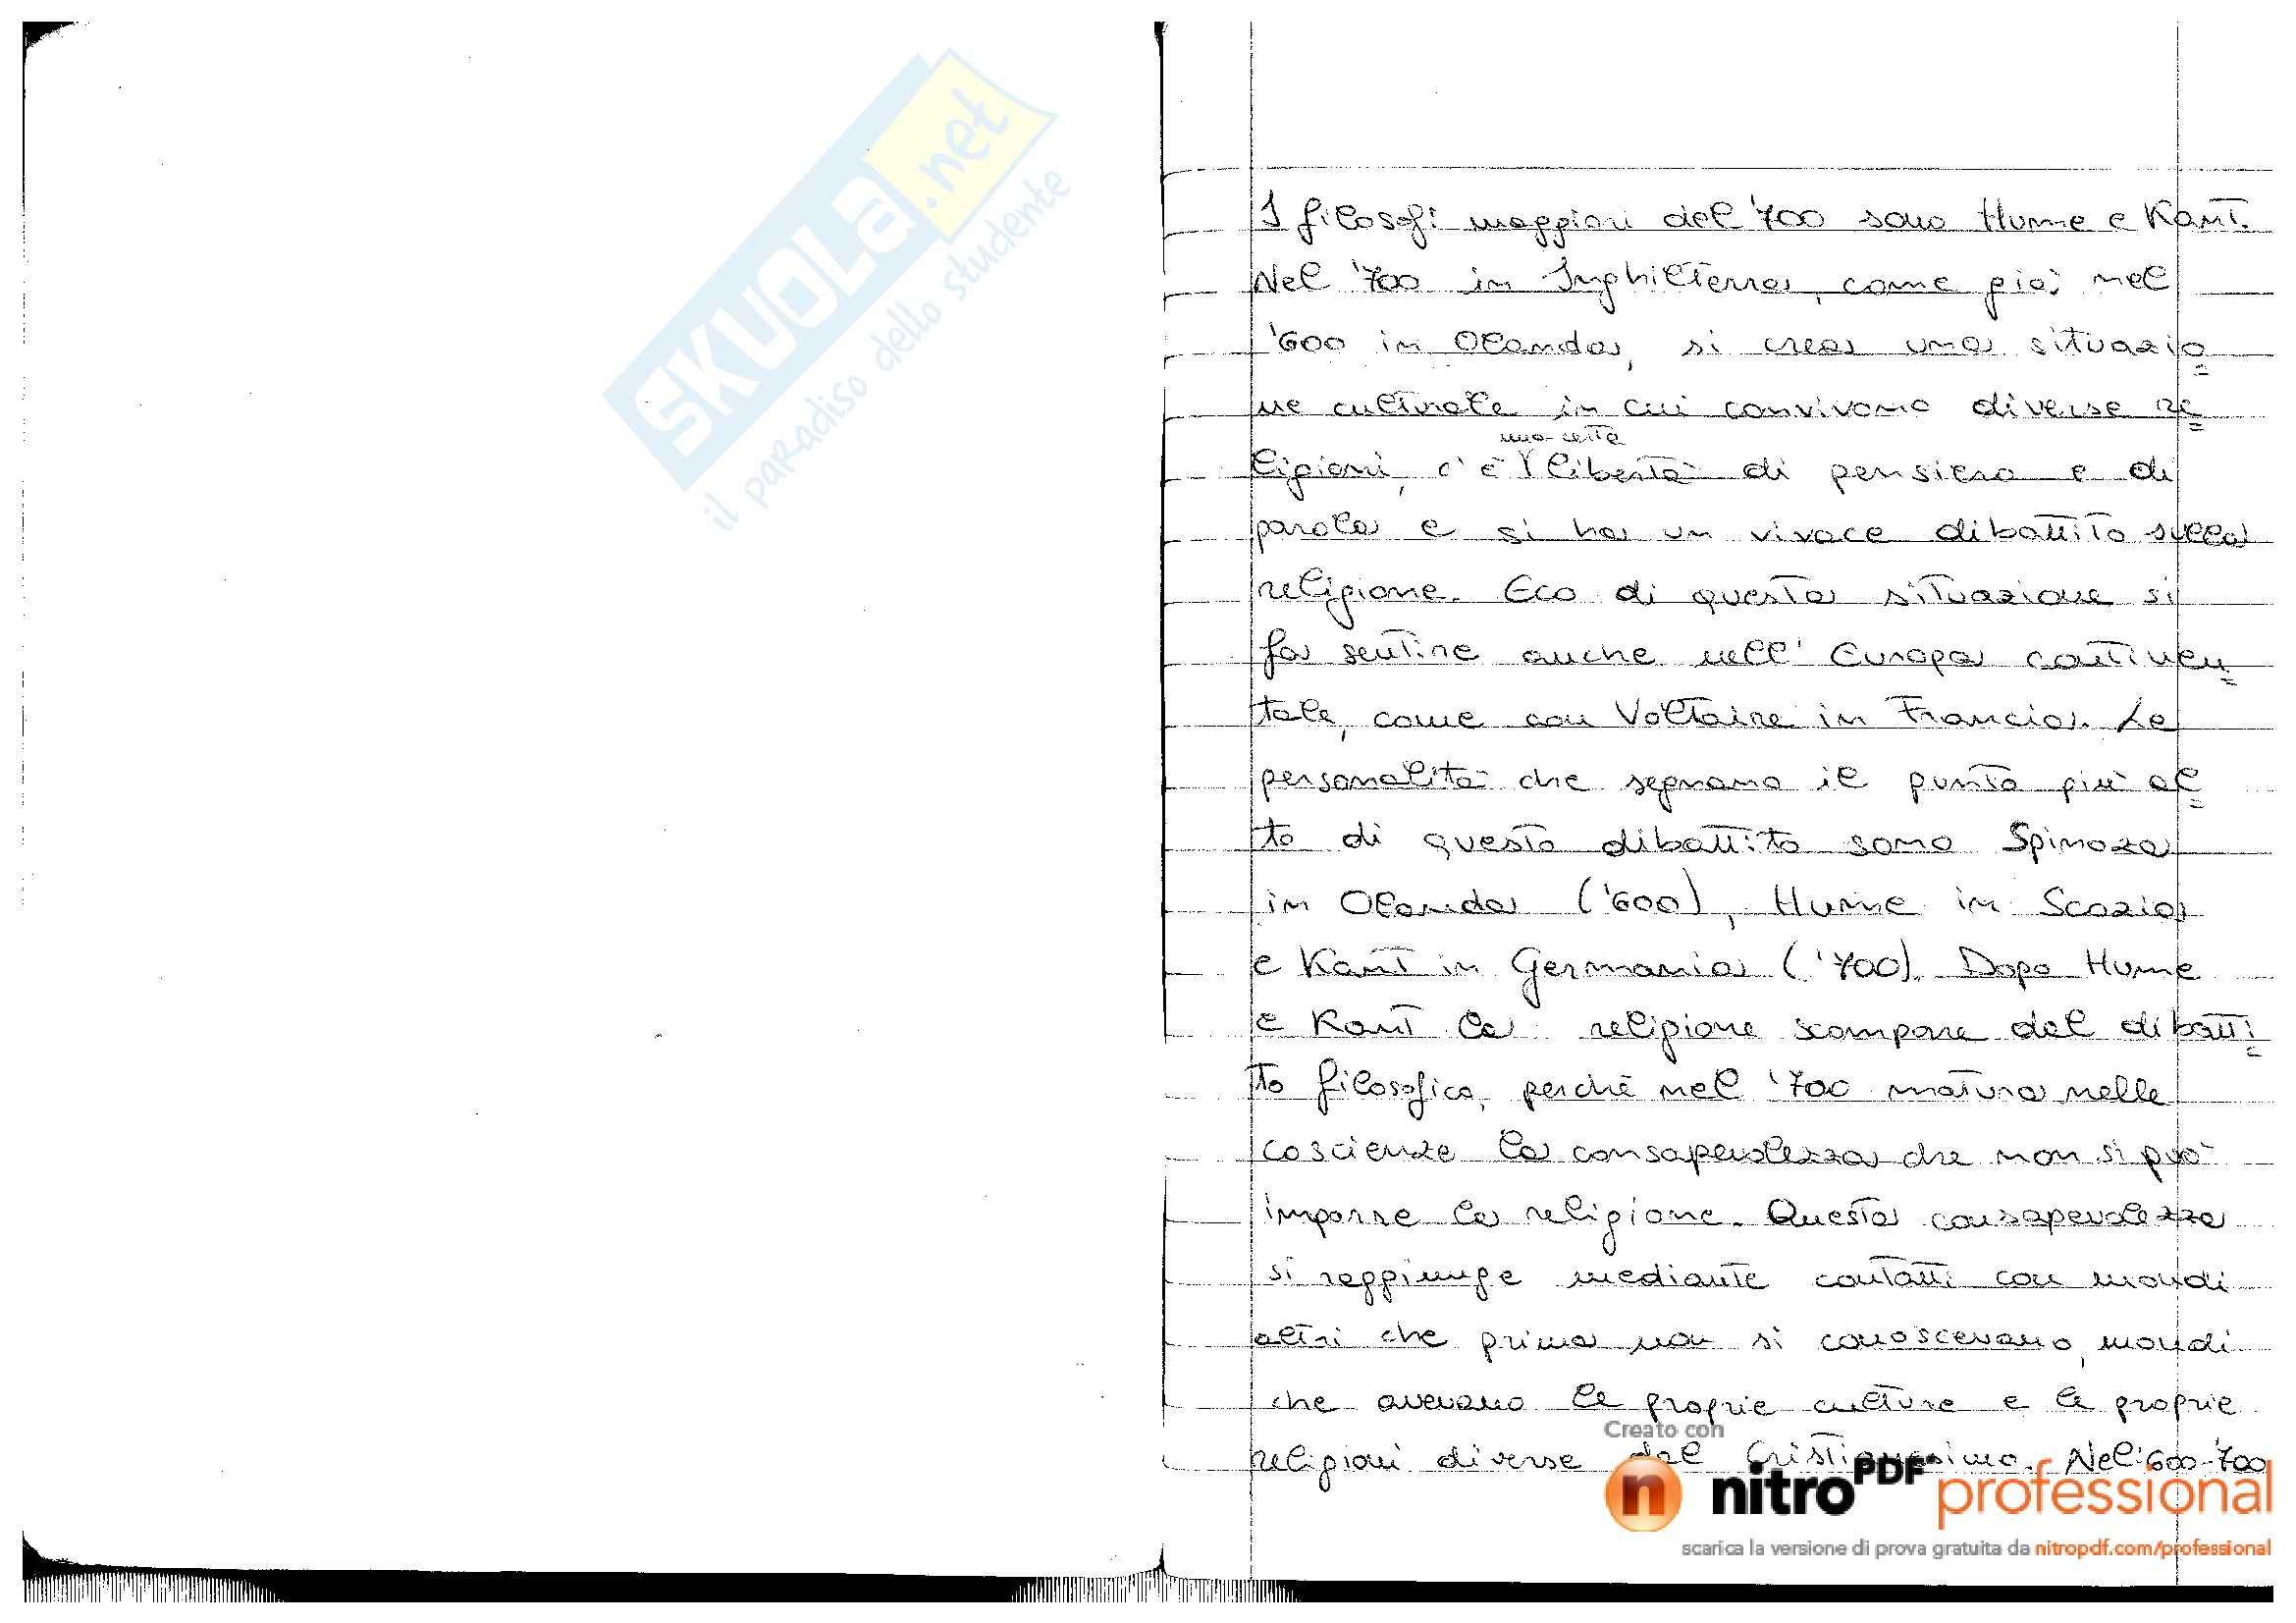 SKUOLA.net
il paradiso dello studente
I filosofi maggiori del '700 sono Hume e Kant.
Nel '700 in Inghilterra, come già nel
'600 in Olanda, si crea una situazio
ne culturale in cui convivono diverse re
una certa
ligioni, c'è libertà di pensiero e di
parola e si ha un vivace dibattito sulla
religione. Eco di questa situazione si
fa sentire anche nell'Europa continen
tale, come con Voltaire in Francia. Le
personalità che segnano il punto più al
to di questo dibattito sono Spinoza
in Olanda ('600), Hume in Scozia
e Kant in Germania ('700). Dopo Hume
e Kant la religione scompare dal dibatti
to filosofico, perché nel '700 matura nelle
coscienze la consapevolezza che non si può
imporre la religione. Questa consapevolezza
si raggiunge mediante contatti con mondi
altri che prima non si conoscevano, mondi
che avevano le proprie culture e le proprie
religioni diverse dal Cristianesimo. Nel '600-'700
Creato con
nitroPDF professional
scarica la versione di prova gratuita da nitropdf.com/professional